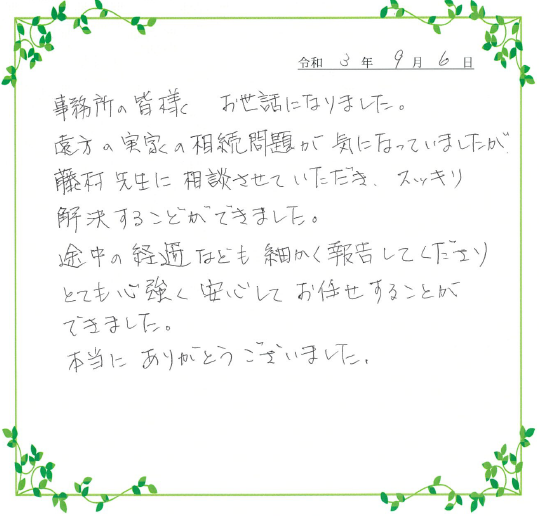 令和 3 年 9 月 6 日
事務所の皆様 お世話になりました。
遠方の実家の相続問題が 気になっていましたが、
藤村先生に 相談させていただき、スッキリ
解決することができました。
途中の経過なども 細かく報告してくださり
とても心強く 安心して お任せすることが
できました。
本当に ありがとう ございました。